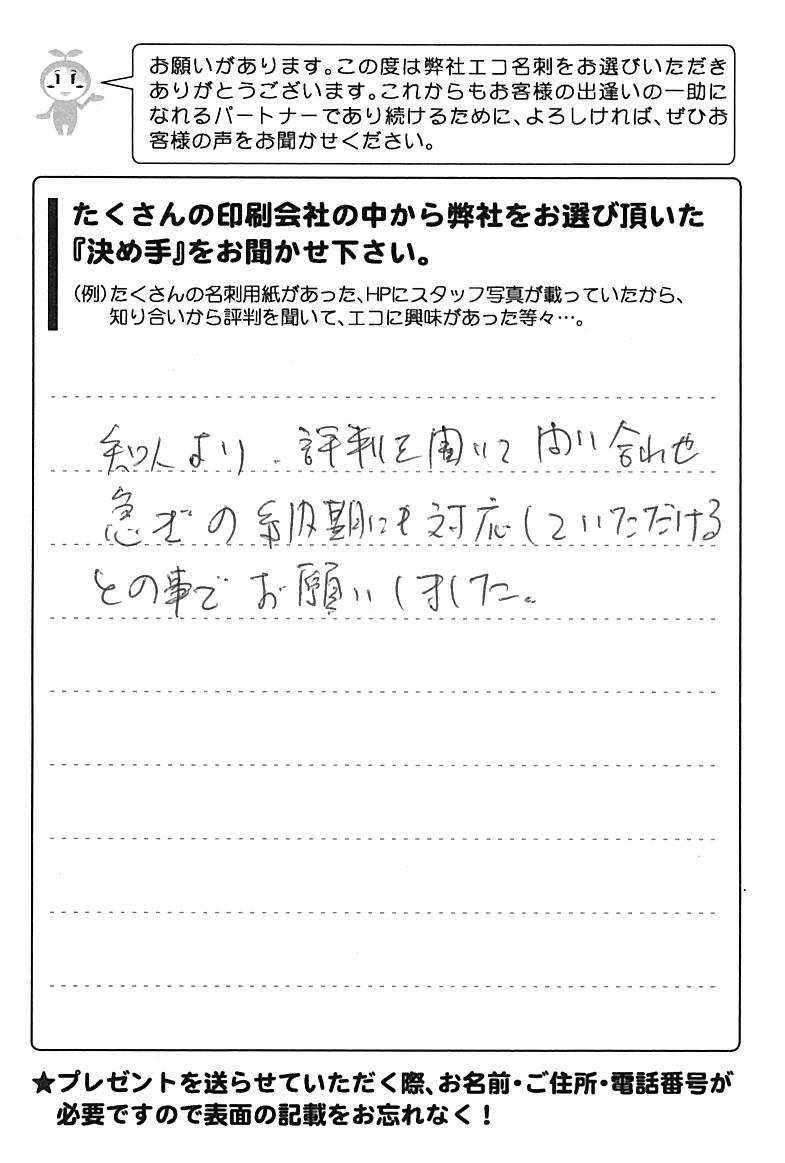 お願いがあります。この度は弊社エコ名刺をお選びいただき
ありがとうございます。これからもお客様の出逢いの一助に
なれるパートナーであり続けるために、よろしければ、ぜひお
客様の声をお聞かせください。
たくさんの印刷会社の中から弊社をお選び頂いた
『決め手』をお聞かせ下さい。
（例）たくさんの名刺用紙があった、HPにスタッフ写真が載っていたから、
知り合いから評判を聞いて、エコに興味があった等々…。
知人より、評判を聞いて問い合わせ
急ぎの納期にも対応していただける
との事でお願いしました。
★プレゼントを送らせていただく際、お名前・ご住所・電話番号が
必要ですので表面の記載をお忘れなく！